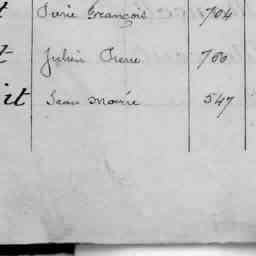 t Pierre François 704
t Julien Pierre 700
it Jean Marie 547